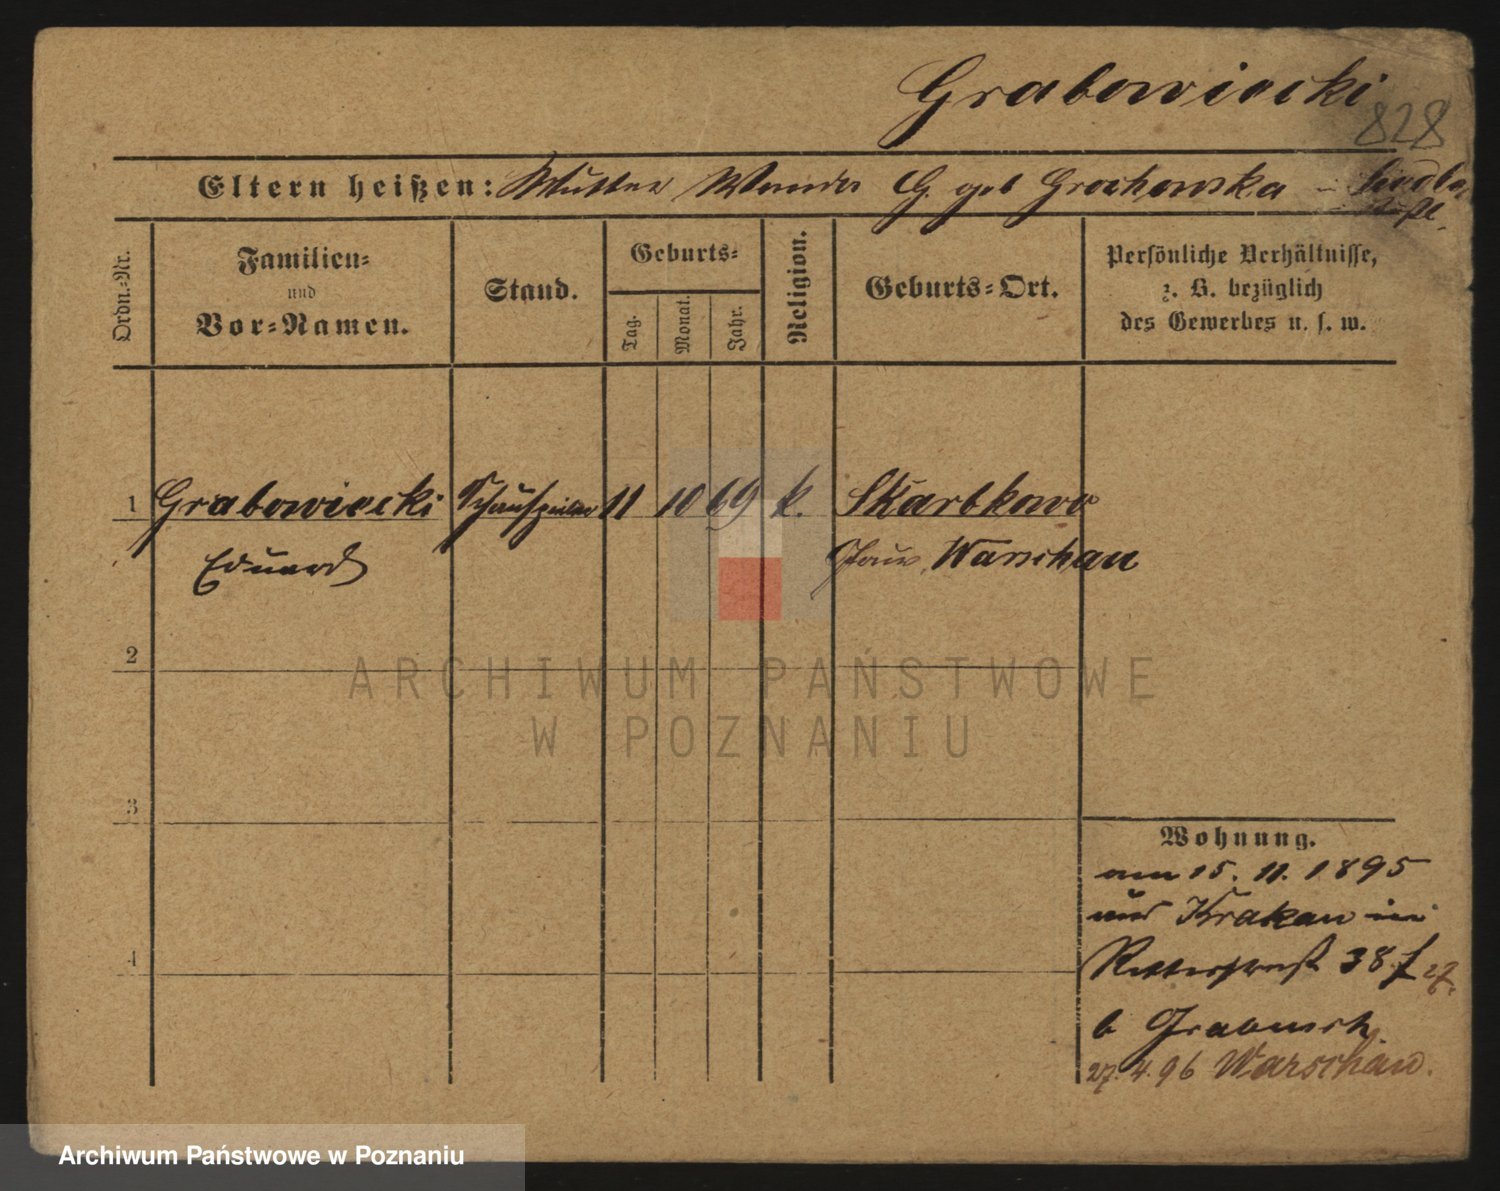 Grabowiecki
828
Eltern heißen: Mutter Wanda G. geb Grochowska
Ordn.-Nr.
Familien- und Vor-Namen.
Stand.
Geburts-
Tag.
Monat.
Jahr.
Religion.
Geburts-Ort.
Persönliche Verhältnisse,
z. B. bezüglich
des Gewerbes u. s. w.
1 Grabowiecki Schauspieler 11 10 69 k. Skarbkowo
Eduard Warschau
2
3
4
Wohnung.
am 15. 11. 1895
aus Krakau
Ritterstraß 38
b
27. 4. 96 Warschau.
ARCHIWUM PAŃSTWOWE
W POZNANIU
Archiwum Państwowe w Poznaniu